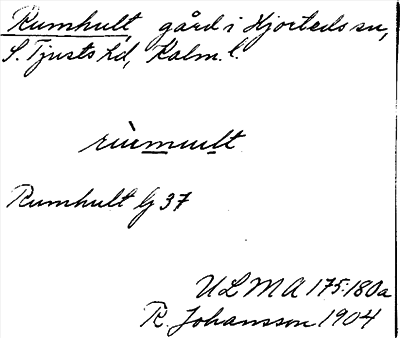 Rumhult gård i Hjorteds sn,
S. Tjusts hd, Kalm. l.
Rumhult lj 37
ULMA 175:180a
R. Johansson 1904